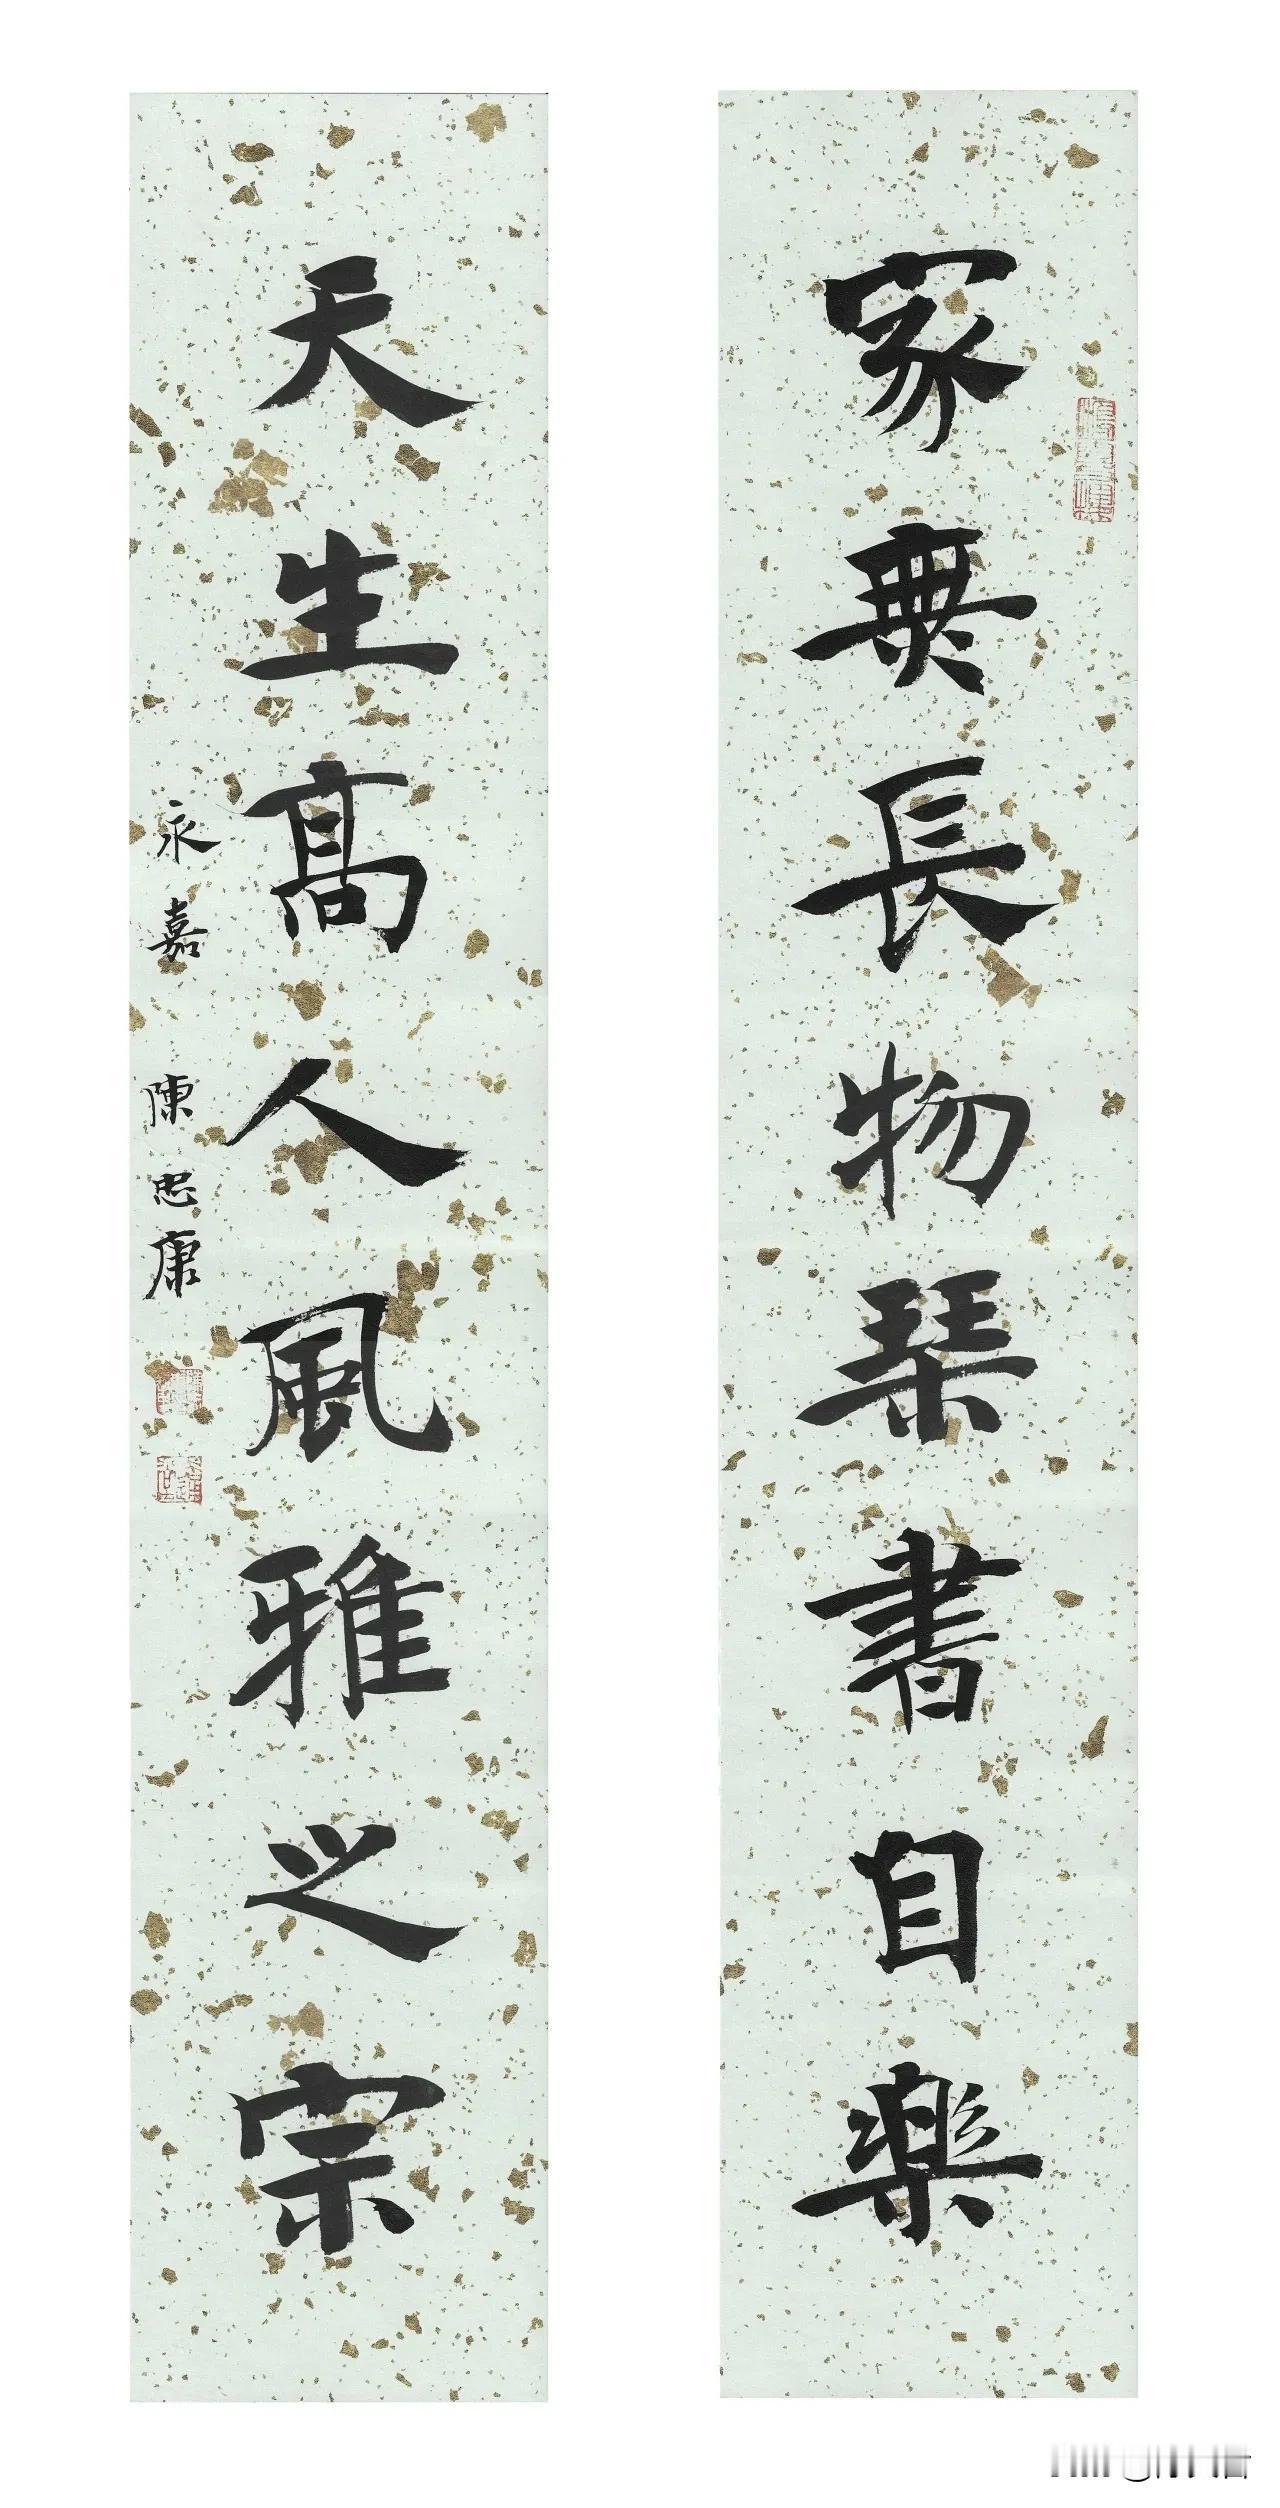 家無長物琴書自樂
天生高人風雅之宗
永嘉 陳思康